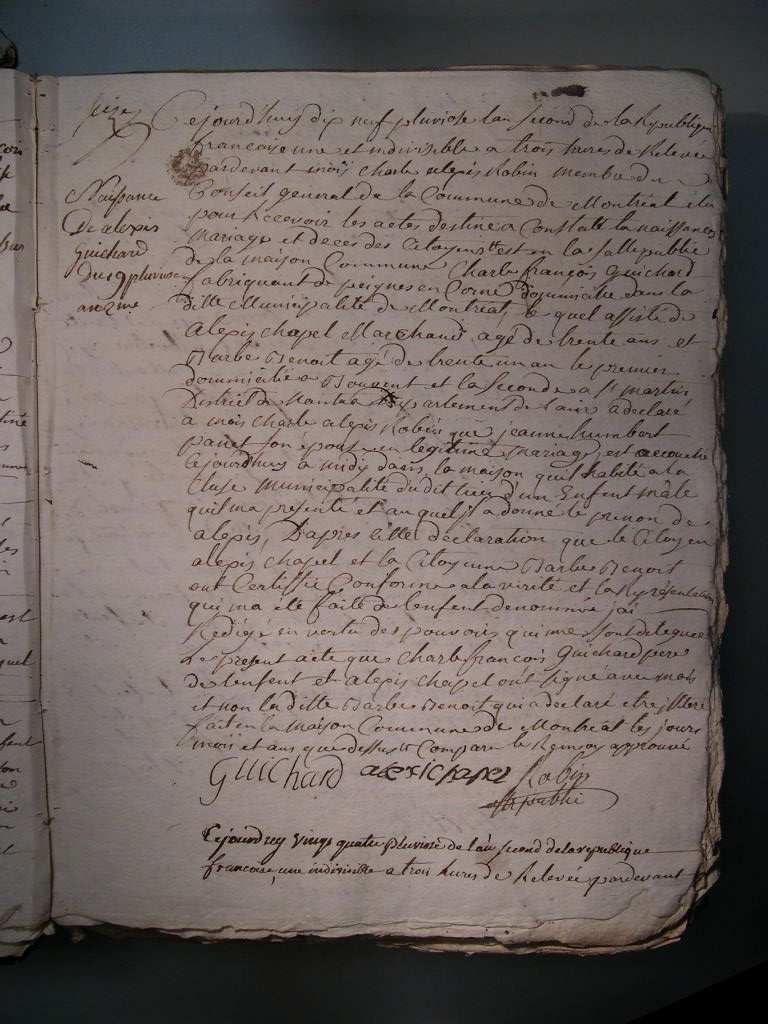 seize
Naissance
De alexis
Guichard
du 19 pluviose
an 2me
Cejourdhuy dix neuf pluviose lan second de la Republique
francoise une et indivisible a trois heures de Relevée
pardevant mois Charle alexis Robin membre du
Conseil general de la Commune de Montréal élu
pour Recevoir les actes destine a Constaté la naissances
Mariage et deces des Citoyens est en la salle publie
de la maison Commune Charle françois Guichard
fabriquant de peignes en Corne domicilie dans la
ditte Municipalité de Montréal, le quel assisté de
alexis chapel Marchand agé de trente ans et
Barbe Benoit agé de trente un an le premier
domiciliée a Bouvent et la seconde a st martin
District de Nantua Departement de lain a declaré
a mois Charle alexis Robin que jeanne humbert
panet son épouse en legitime Mariage est accouchée
cejourdhuy a midy dans la maison quil habite a la
Cluse municipalité du dit lieu d'un Enfent mâle
quil ma présenté et au quel il a donné le prenon de
alexis, D'apres cette déclaration que le Citoyen
alexis chapel et la Citoyenne Barbe Benoit
ont Certiffié Conforme a la vérité et la Représentation
qui ma été faite de lenfent denommé jai
Redigé en vertu des pouvoirs qui me sont delegués
Le présent acte que Charle françois Guichard pere
de lenfent et alexis chapel ont signé avec mois
et non la ditte Barbe Benoit qui a declaré etre illitere
fait en la Maison Commune de Montréal les jours
mois et ans que dessus Compare le Renvoy approuvé
GUichard alexichapel Robin
of publie
Cejourduy vingt quatre pluviose de l'an second de la republique
francoise, une indivisible a trois hures de Relevée pardevant